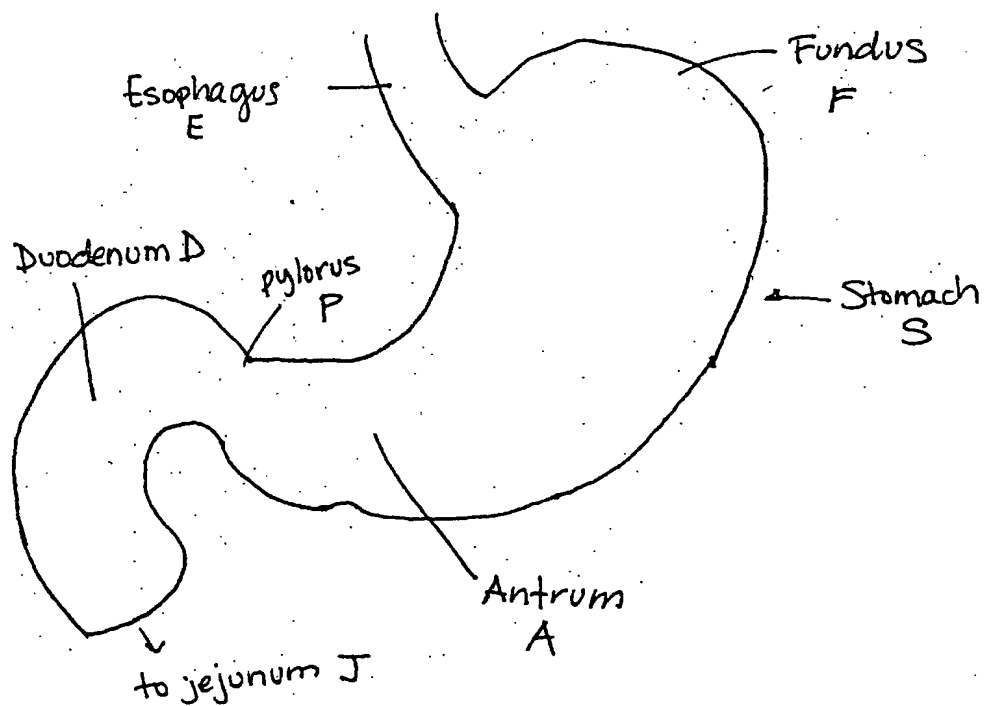 Esophagus
E
Fundus
F
Duodenum D
pylorus
P
Stomach
S
Antrum
A
to jejunum J